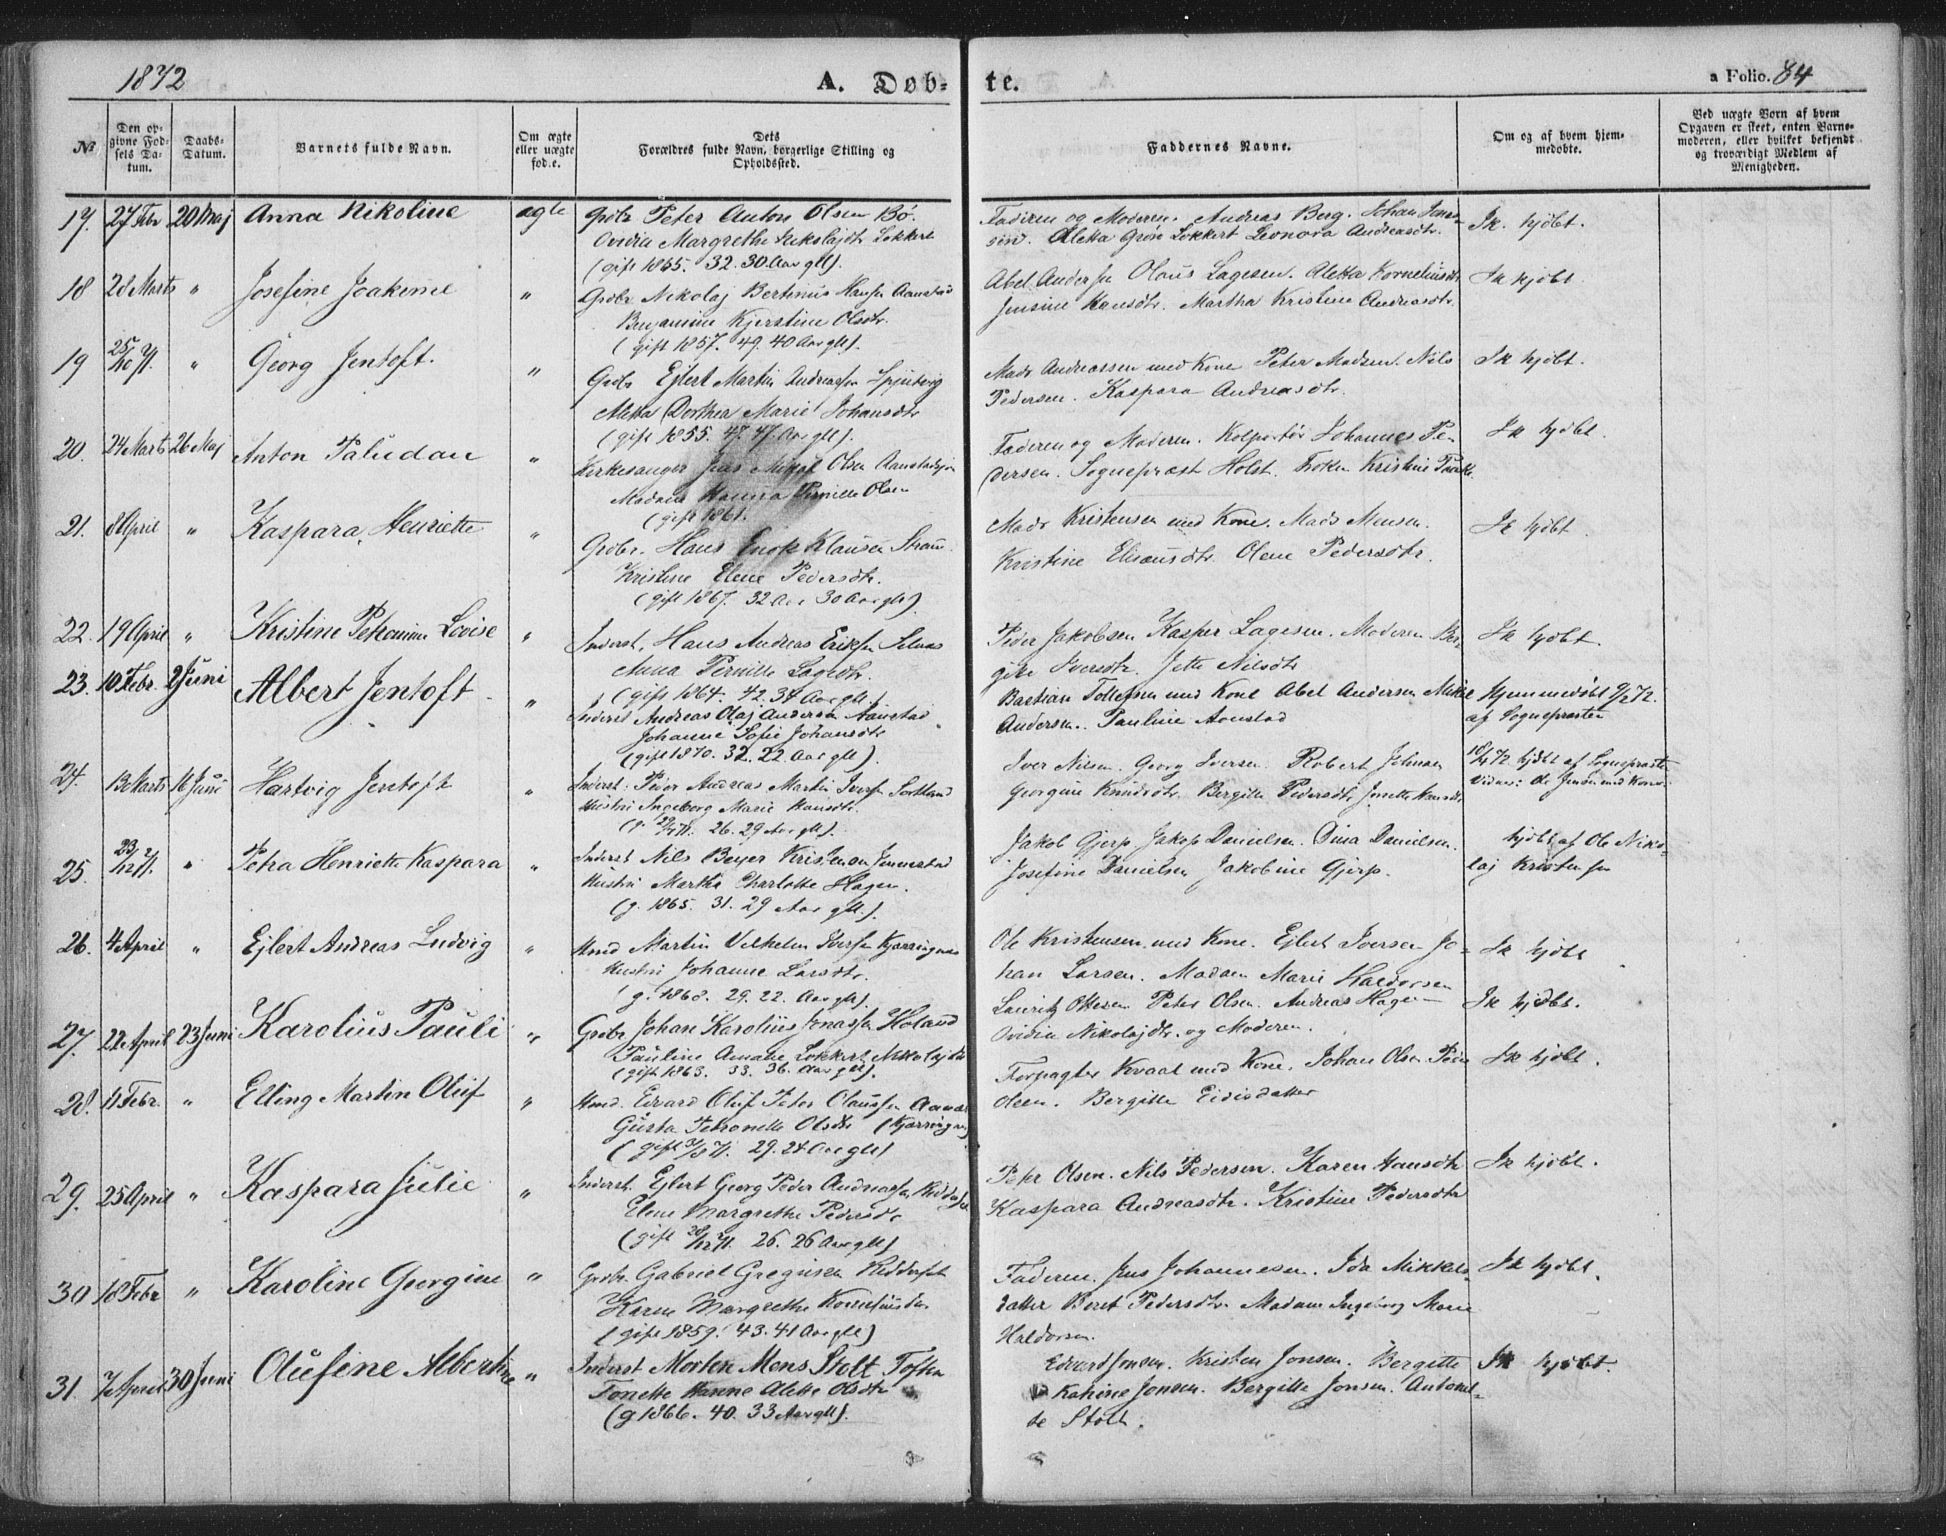 1872
A. Døb-
te.
a Folio. 84
No
Den opgivne Fødsels Datum.
Daabs-Datum.
Barnets fulde Navn.
Om ægte eller uægte fød.e.
Dets Forældres fulde Navn, borgerlige Stilling og Opholdssted.
Faddernes Navne.
Om og af hvem hjemmedøbte.
Ved uægte Børn af hvem Opgaven er skeet, enten Barnemoderen, eller hvilket bekjendt og troværdigt Medlem af Menigheden.
17. 27 Febr 20 Maj Anna Nikoline ægte
Grdbr Peter Anton Olsen Bø.
Ovidia Margrethe Nikolajdtr Lokkert
(gift 1855. 32. 30 Aar gll).
Faderen og Moderen. Andreas Berg. Johan Jons-
sen. Aletta Grøn Lokkert Leonora Andreasdtr.
Ik. hjdbt.
18 28 Marts " Josefine Joakime "
Grdbr Nikolaj Bertinus Hansen Aanstad
Benjamine Kjerstine Olsdtr.
(gift 1857. 49. 40 Aar gll).
Abel Andersen Olaus Lagesen. Aletta Korneliusdtr
Jensine Hansdtr. Martha Kristine Andreasdtr.
Ik hjdbt
19 25/10 71. " Georg Jentoft. "
Grdbr Ejlert Martin Andreassen Spjutvig
Aletta Dorthea Marie Johansdtr
(gift 1855. 47. 47 Aar gll).
Mads Andreassen med Kone Peter Madsen. Nils
Pedersen. Kaspara Andreasdtr.
Ik hjdbt.
20. 24 Marts 26 Maj Anton Paludan "
Kirkesanger Jens Mikal Olsen
Madam Hanna Pernille Olsen
(gift 1861.
Faderen og Moderen. Kolportør Johannes Pe-
dersen. Sognepræst Holst. Frøken Kristine
Ik hjdbt.
21. 8 April " Kaspara Henriette "
Grdbr. Hans Enok Klausen Straum
Kristine Elene Pedersdtr.
(gift 1867. 32 Aar 30 Aar gll).
Mads Kristensen med Kone. Mads Monsen.
Kristine Elisæusdtr. Olene Pedersdtr.
Ik hjdbt
22. 19 April " Kristine Lovise "
Inderst. Hans Andreas Eriksen Selnæs
Anna Pernille Lagedtr.
(gift 1864. 42. 34 Aar gll).
Peder Jakobsen Kasper Lagesen. Moderen Ber-
gite Iversdtr. Jette Nilsdtr
Ik hjdbt.
23. 10 Febr. 2 Juni Albert Jentoft "
Inderst Andreas Olaj Andersen Aanstad
Johanne Sofie Johansdtr
(gift 1870. 32. 22 Aar gll).
Bastian Tollefsen med Kone Abel Andersen Mikal
Andersen. Pauline Aanstad
Hjemmedøbt 72.
af Sognepræsten
24. 13 Marts 16 Juni Hartvig Jentoft "
Inderst: Peder Andreas Martin Iversen Sortland
Hustru Ingeborg Marie Hansdtr.
(g. 71. 26. 29 Aar gll).
Iver Nilsen. Georg Iversen. Robert Johnsen
Georgine Knudsdtr. Bergitte Pedersdtr Jenette Hansdtr
72 hjdbt af Sognepræst.
Vidner: Ole Jensen med Kone.
25. 23/12 71. " Petra Henriette Kaspara "
Inderst Nils Beyer Kristensen Jennestad
Hustru Martha Charlotte Hagen.
(g. 1865. 31. 29 Aar gll).
Jakob Gjerp Jakop Danielsen. Dina Danielsen.
Josefine Danielsen Jakobine Gjerp.
hjdbt af Ole Niko-
laj Kristensen
26. 4 April " Ejlert Andreas Ludvig "
Hmd Martin Vilhelm Iversen Kjærringnæs
Hustru Johanne Larsdtr.
(g. 1868. 29. 22. Aar gll).
Ole Kristensen med Kone. Ejlert Iversen Jo-
han Larsen. Madam Marie Haldorsen
Ik hjdbt
27. 22 April 23 Juni Karolius Pauli "
Grdbr Johan Karolius Jonassen Holand
Pauline Amalie Lokkert Nikolajdtr
(gift 1863. 33. 36. Aar gll).
Lauritz Ottesen Peter Olsen. Andreas Hagen
Ovidia Nikolajdtr. og Moderen.
Ik hjdbt.
28. 11 Febr. " Elling Martin Oluf "
Hmd. Edvard Oluf Peter Olaussen
Gusta Petronelle Olsdtr (Kjærringnæs)
(gift 71. 29. 24 Aar gll)
Forpagter Kvaal med Kone. Johan Olsen Peder
Olsen. Bergitte Eidisdatter
Ik hjdbt.
29. 25 April " Kaspara Julie "
Inderst. Ejlert Georg Peder Andreassen
Elene Margrethe Pedersdtr
(gift 28/12 71. 26. 26 Aar gll)
Peter Olsen. Nils Pedersen. Karen Hansdtr
Kaspara Andreasdtr. Kristine Pedersdtr
Ik hjdbt.
30 18 Febr " Karoline Georgine "
Grdbr. Gabriel Gregusen
Karen Margrethe Korneliusdtr
(gift 1859. 43. 41 Aar gll)
Faderen. Jens Johannesen. Ida Mikkels-
datter Beret Pedersdtr. Madam Ingeborg Marie
Haldorsen.
Ik hjdbt.
31. 7 April 30 Juni Olufine Albertine "
Inderst Morten Mons Stolt Toften
Tonette Hanne Alette Olsdtr
(g 1866. 40. 33 Aar gll).
Edvard Jonsen. Kristen Jonsen. Bergitte
Katrine Jonsen. Bergitte Jonsen. Antonet-
te Stolt.
Ik hjdbt.